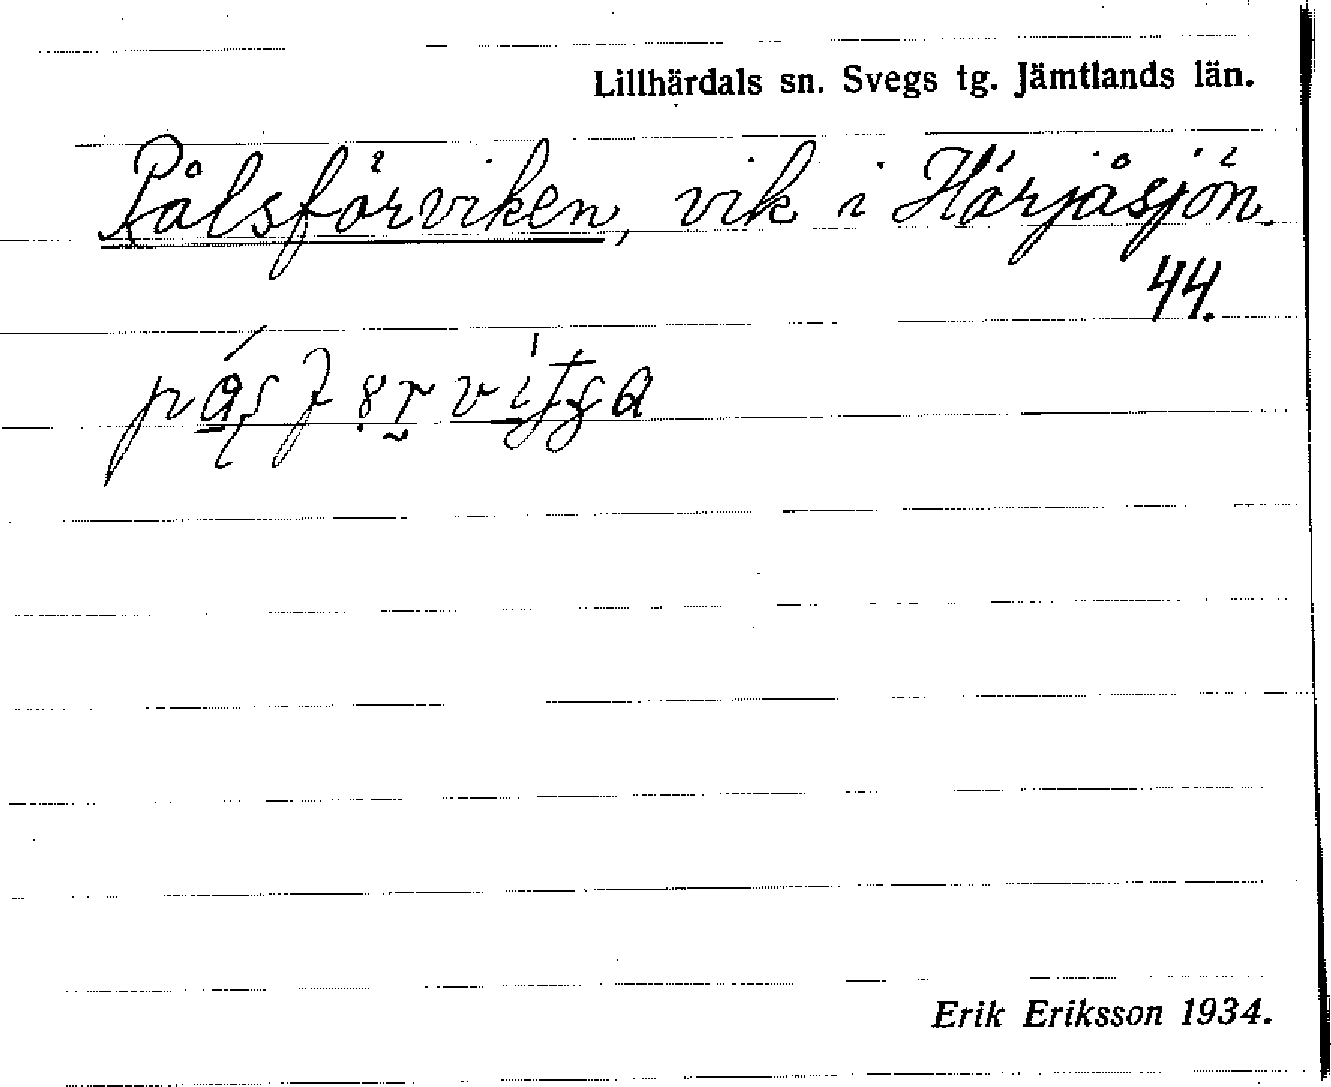 Lillhärdals sn. Svegs tg. Jämtlands län.
Pålsförviken, vik i Hörjåsjön.
44.
Erik Eriksson 1934.